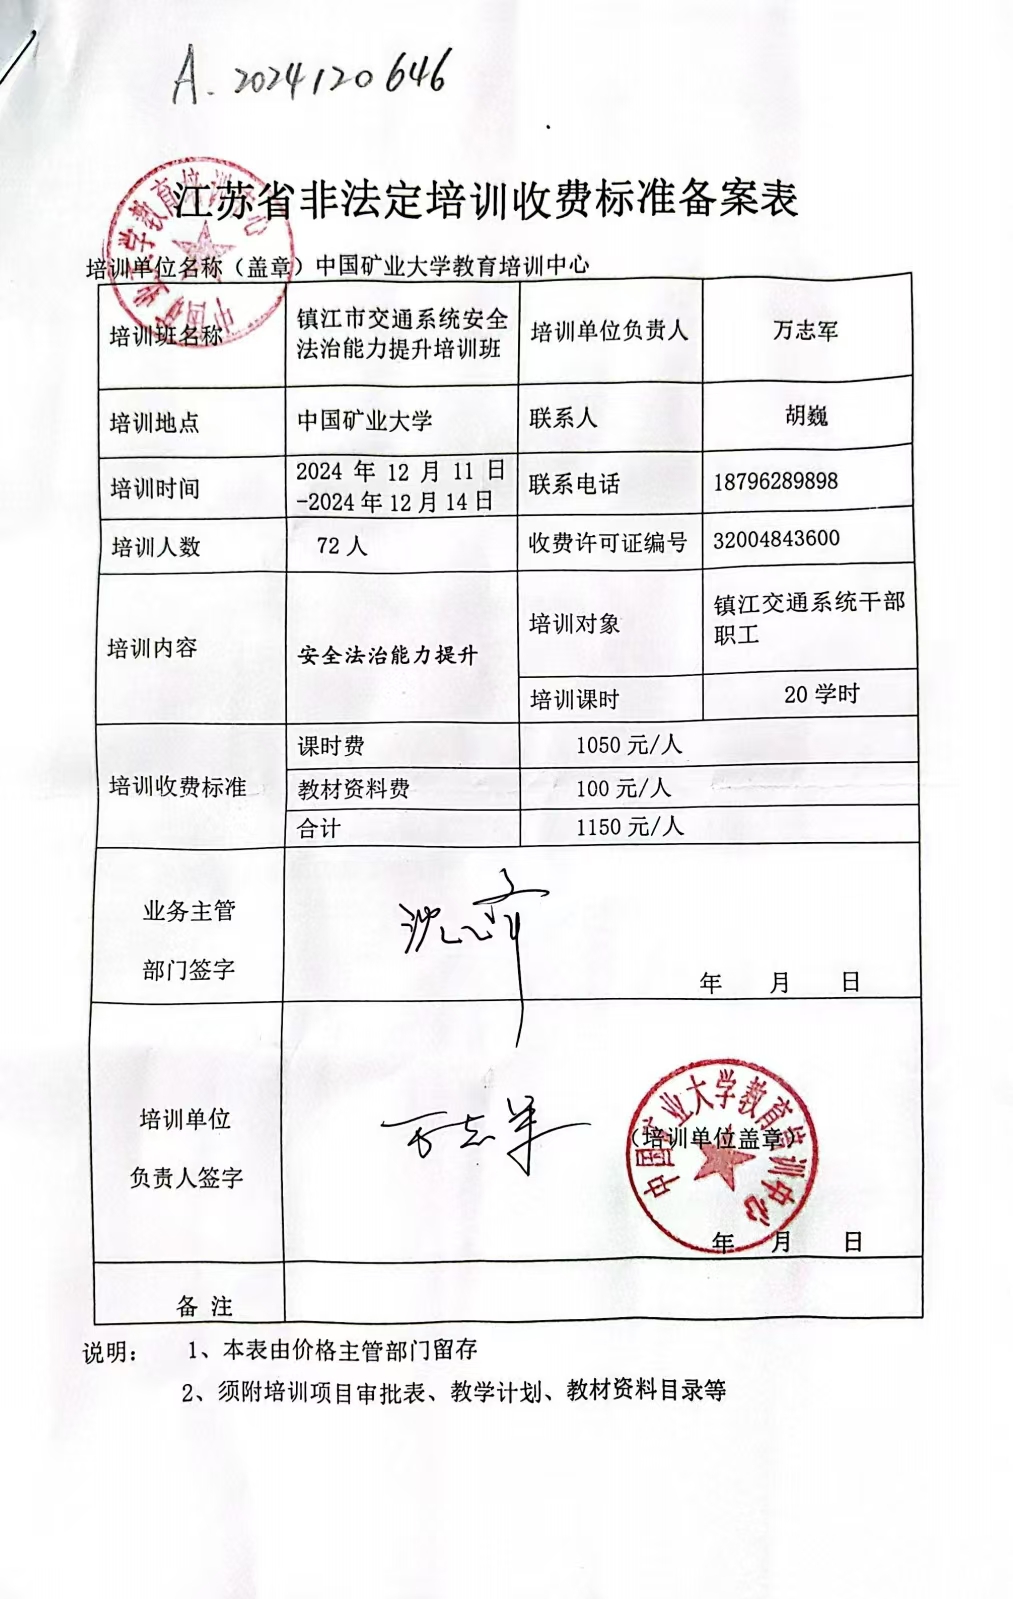 A. 2024120646
江苏省非法定培训收费标准备案表
培训单位名称（盖章）中国矿业大学教育培训中心
中国矿业大学教育培训中心
培训班名称
镇江市交通系统安全
法治能力提升培训班
培训单位负责人
万志军
培训地点
中国矿业大学
联系人
胡巍
培训时间
2024 年 12 月 11 日
-2024 年 12 月 14 日
联系电话
18796289898
培训人数
72 人
收费许可证编号
32004843600
培训内容
安全法治能力提升
培训对象
镇江交通系统干部
职工
培训课时
20 学时
培训收费标准
课时费
1050 元/人
教材资料费
100 元/人
合计
1150 元/人
业务主管
部门签字
年 月 日
培训单位
负责人签字
万志军
中国矿业大学教育培训中心
（培训单位盖章）
年 月 日
备 注
说明： 1、本表由价格主管部门留存
2、须附培训项目审批表、教学计划、教材资料目录等